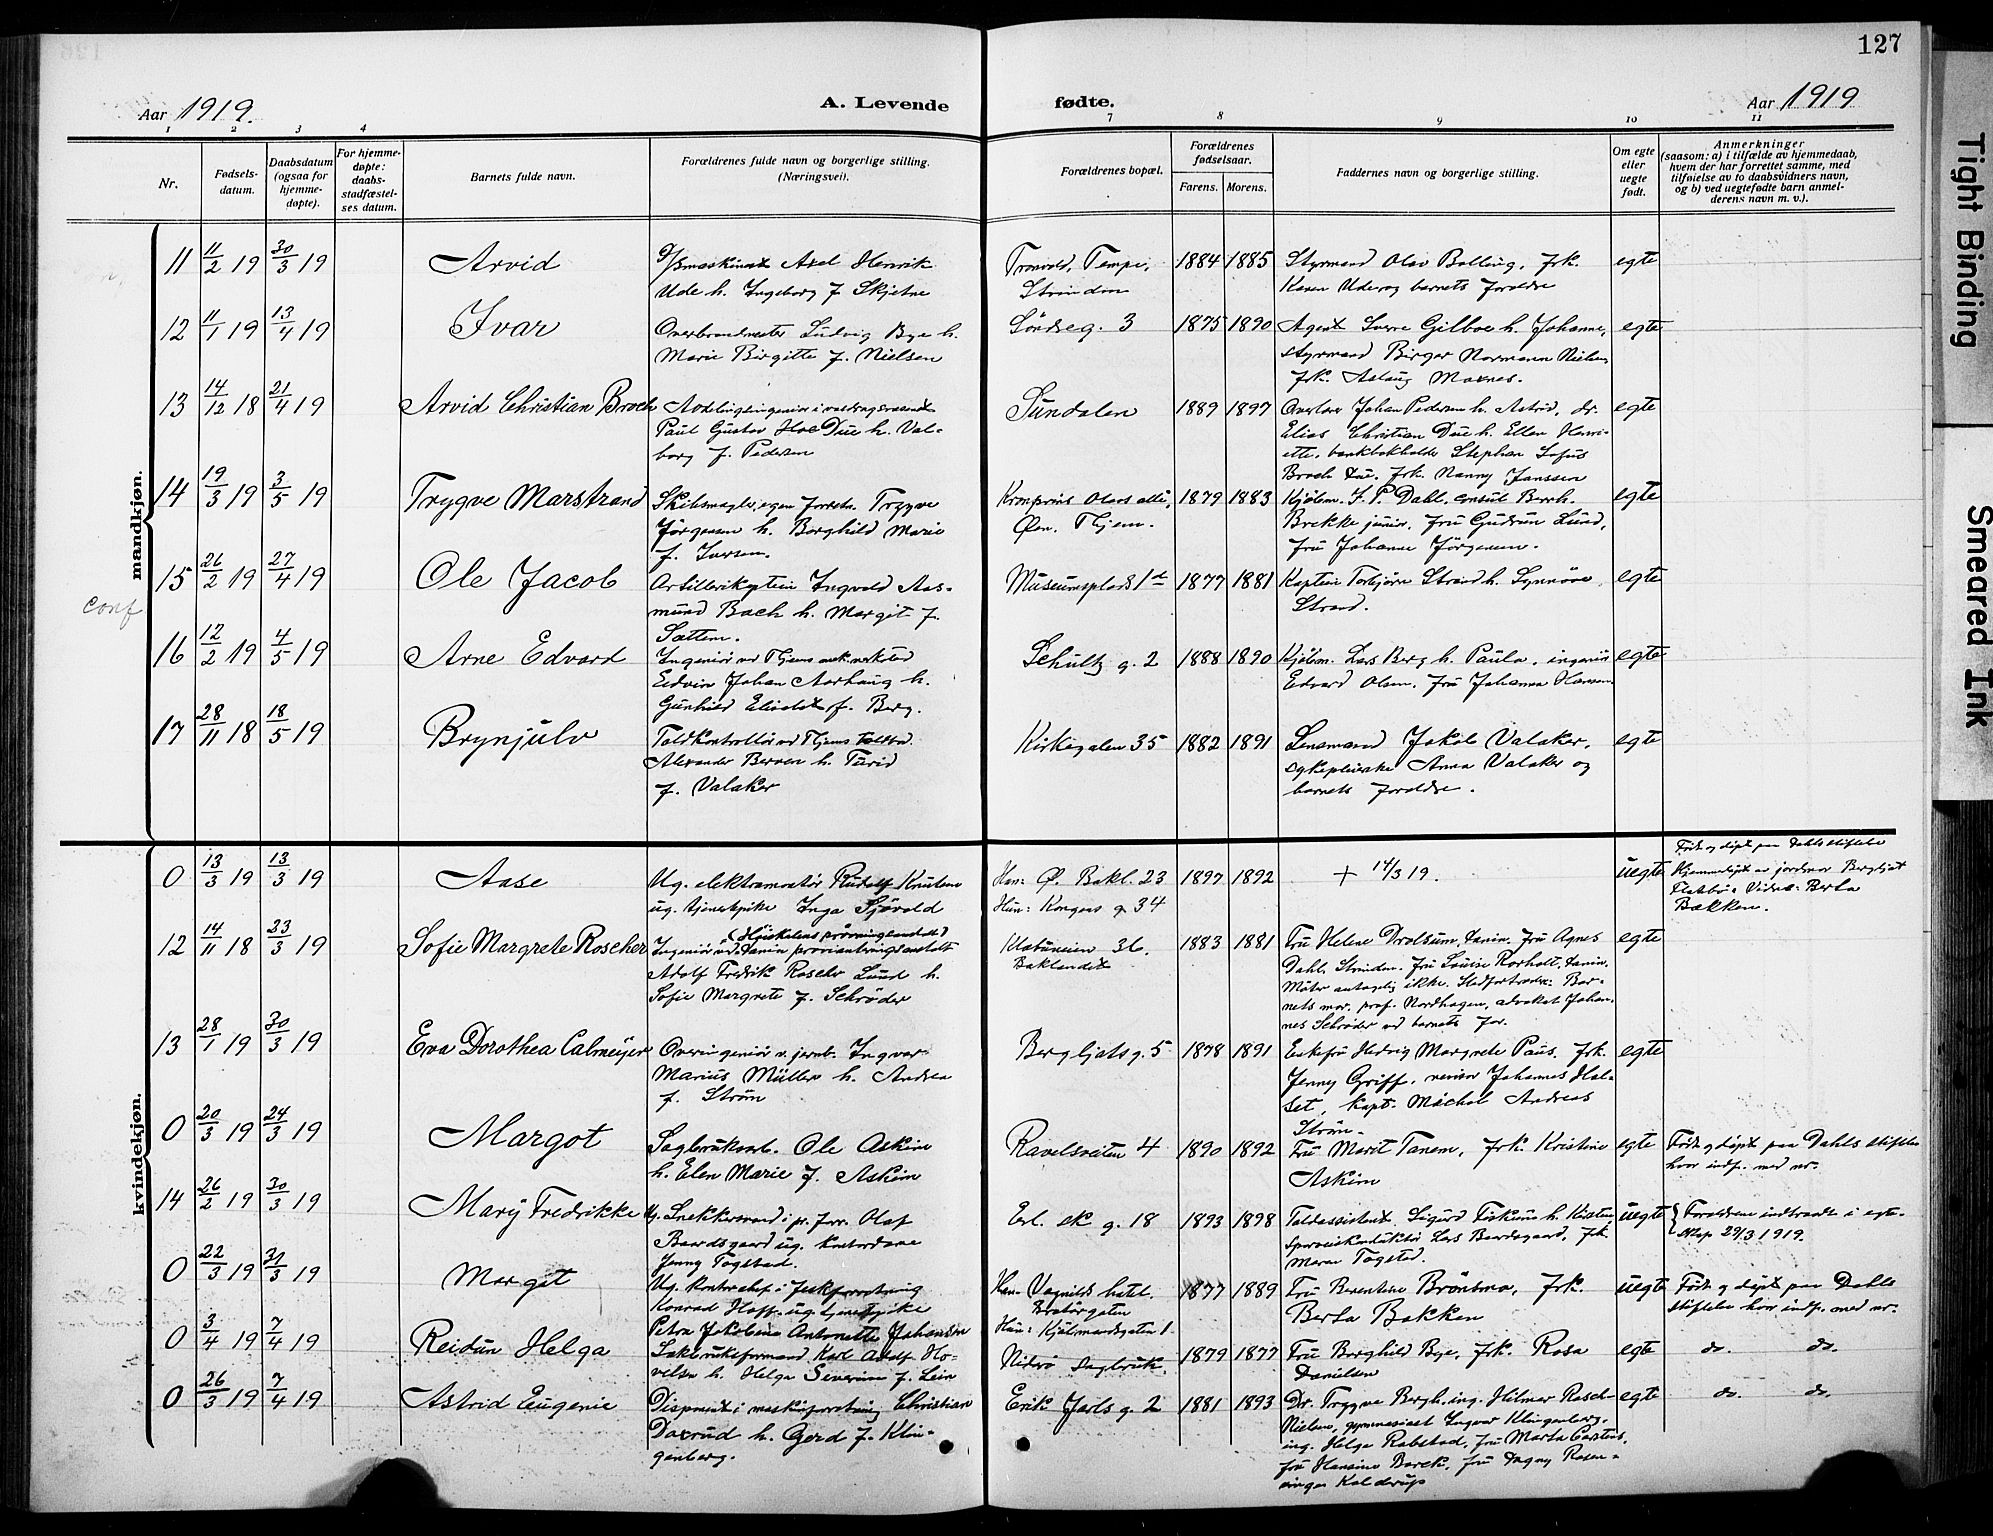 127
Aar 1919.
A. Levende
fødte.
Aar 1919
1 2 3 4 7 8 9 10 11
Nr.
Fødsels-
datum.
Daabsdatum
(ogsaa for
hjemme-
døpte).
For hjemme-
døpte:
daabs-
stadfæstel-
ses datum.
Barnets fulde navn.
Forældrenes fulde navn og borgerlige stilling.
(Næringsvei).
Forældrenes bopæl.
Forældrenes
fødselsaar.
Farens. Morens.
Faddernes navn og borgerlige stilling.
Om egte
eller
uegte
født.
Anmerkninger
(saasom: a) i tilfælde av hjemmedaab,
hvem der har forrettet samme, med
tilføielse av to daabsvidners navn,
og b) ved uegtefødte barn anmel-
derens navn m. v.).
mandkjøn.
11 11/2 19 30/3 19 Arvid
Axel Henrik
Ude h. Ingeborg f. Skjetne
Tronvold, Tempe,
Strinden
1884 1885
Styrmand Olav Balling, frk.
Karen Ude og barnets forældre
egte
12 11/1 19 13/4 19 Ivar
Overbrandmester Ludvig Bye h.
Marie Birgitte f. Nielsen
Søndreg. 3
1875 1890
Agent Sverre Gilboe h. Johanne,
styrmand Birger Normann Nielsen,
frk. Aslaug Moxnes.
egte
13 14/12 18 21/4 19 Arvid Christian Broch
Avdelingsingeniør i vasdragsvæsenet
Paul Gustav Hoe Due h. Val-
borg f. Pedersen
Sundalen
1889 1897
Johan Pedersen h. Astrid, dr.
Elias Christian Due h. Ellen Henri-
ette, bankbokholder Stephan Sofus
Broch Due, frk. Nanny Janssen
egte
14 19/3 19 3/5 19 Trygve Marstrand
Skibsmægler, egen forretn. Trygve
Jørgensen h. Borghild Marie
f. Iversen.
Kronprins Olavs alle,
Øen, Thjem.
1879 1883
Kjøbm. F. P. Dahl, consul Bernh.
Brekke junior, fru Gudrun Lund,
fru Johanne Jørgensen.
egte
15 26/2 19 27/4 19 Ole Jacob
Artillerikaptein Ingvald Aas-
mund Bach h. Margit f.
Sættem.
Museumsplads 1 d
1877 1881
Kaptein Torbjørn Strand h. Synnøve
Strand.
egte
conf
16 12/2 19 4/5 19 Arne Edvard
Ingeniør ved Thjems mek. verksted
Edvin Johan Aarhaug h.
Gunhild Elisabet f. Berg.
Schultz g. 2
1888 1890
Kjøbm. Lars Berg h. Paula, ingeniør
Edvard Olsen, fru Johanna Hansen
egte
17 28/11 18 18/5 19 Brynjulv
Toldkontrollør ved Thjems toldbod
Alexander Berven h. Turid
f. Valaker
Kirkegaten 35
1882 1891
Lensmand Jakob Valaker,
sykepleierske Anna Valaker og
barnets forældre.
egte
kvindekjøn.
0 13/3 19 13/3 19 Aase
Ug. elektromontør Rudolf Knutsen
ug. tjenestpike Inga Sjøvold
Han: Ø. Bakl. 23
Hun: Kongens g. 34
1897 1892
+ 14/3 19.
uegte
Født og døpt paa Dahls stiftelse
Hjemmedøpt av jordmor Bergljot
Flatbø. Vidne: Berta
Bakken.
12 14/11 18 23/3 19 Sofie Margrete Roscher
(Høiskolens prøvningsanstalt)
Ingeniør ved
Adolf Fredrik Roscher Lund h.
Sofie Margrete f. Schrøder
Klæbuveien 36.
Baklandet
1883 1881
Fru Helene Drolsum, fru Agnes
Dahl, Strinden. Fru Louise Rørholt,
Møter antagelig ikke. Stedfortræder: Bar-
nets mor, prof. Nordhagen, advokat Johan-
nes Schrøder ved barnets far.
egte
13 28/1 19 30/3 19 Eva Dorothea Calmeyer
Overingeniør v. jernb. Ingvar
Marius Müller h. Andrea
f. Strøm
Bergljots g. 5
1878 1891
Enkefru Hedvig Margrete Paus, frk.
Jenny Griff, revisor Johannes Hal-
set, kapt. Michal Andreas
Strøm.
egte
0 20/3 19 24/3 19 Margot
Sagbruksarb. Ole Askim
h. Elen Marie f. Askim
Ravelsveiten 4
1890 1892
Fru Marit Tanem, frk. Kristine
Askim
egte
Født og døpt paa Dahls stiftelse
hvor indf. med nr.
14 26/2 19 30/3 19 Mary Fredrikke
Ug. Snekkersvend i pr. forr. Olaf
Baardsgaard ug. kontordame
Jenny Togstad.
Erl. sk g. 18
1893 1898
Toldassistent Sigurd Fiskum h. Kirsten
Sporveiskonduktør Lars Bardsgaard, frk
Maren Togstad.
uegte
Forældrene indtraadt i egte-
skap 29/3 1919.
0 22/3 19 31/3 19 Margit
Ug. kontorchef i Fiskforretning
Konrad Hoff, ug. tjenestpike
Petra Jakobine Antonette Johansen
Han: Vognilds hotel.
Brattørgaten
Hun: Kjøbmandsgaten 1
1877 1889
Fru Berentine Brønsmo, frk.
Berta Bakken
uegte
Født og døpt paa Dahls
stiftelse hvor indf. med nr.
0 3/4 19 7/4 19 Reidun Helga
Sakbruksformand Karl Adolf Ho-
velsen h. Helga Severine f. Lein
Nidarø sagbruk
1879 1877
Fru Borghild Bye, frk. Rosa
Danielsen
egte
do. do.
0 26/3 19 7/4 19 Astrid Eugenie
Disponent i maskinforretning Christian
Daxrud h. Gerd f. Klin-
genberg.
Erik Jarls g. 2
1881 1893
Dr. Trygve Bergh, ing. Hilmar Rasch-
Nielsen, gymnasiast Ingvar Klingenberg,
ing. Helge Rabstad, fru Marta Carstens,
fru Hansine Barck, fru Dagny Rosen-
vinge Kolderup
egte
do. do.
Tight Binding
Smeared Ink